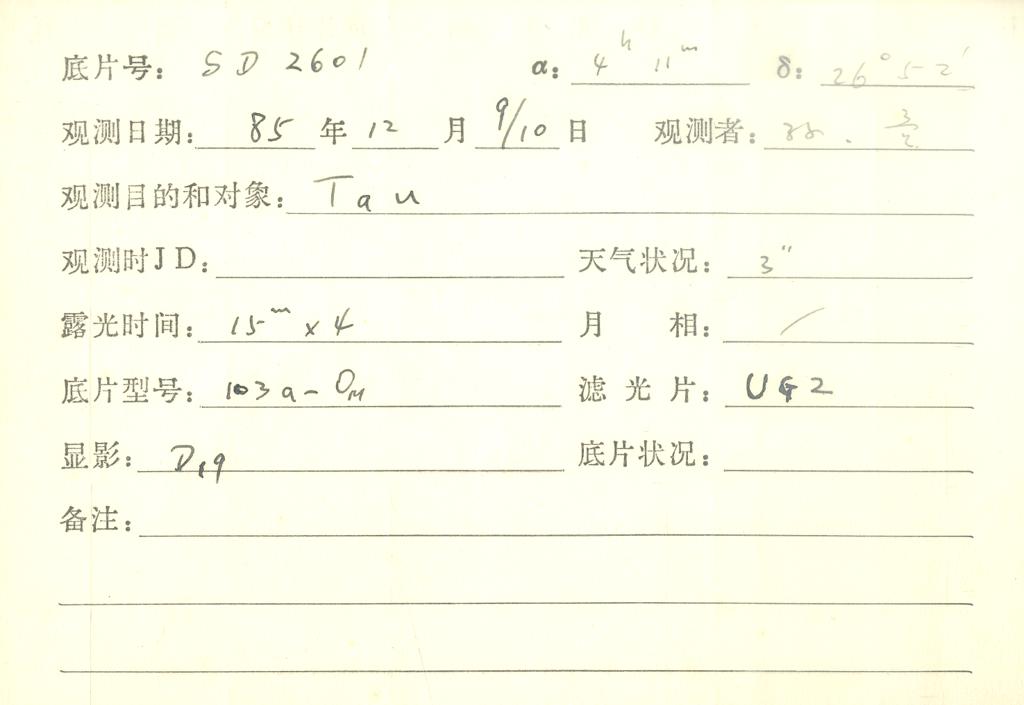 底片号: SD 2601 α: 4ʰ 11ᵐ δ: 26° 52′
观测日期: 85 年 12 月 9/10 日 观测者:
观测目的和对象: Tau
观测时JD: 天气状况: 3″
露光时间: 15ᵐ x 4 月 相: /
底片型号: 103a-OM 滤 光 片: UG2
显影: D19 底片状况:
备注: